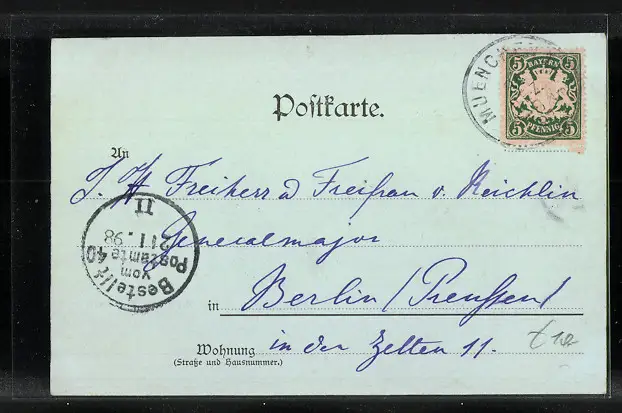 MUENCHE
5 BAYERN 5
5 PFENNIG 5
Postkarte.
An
Freiherr Freifrau v. Reichlin
Generalmajor
in Berlin (Preussen)
in den Zelten 11.
Wohnung
(Straße und Hausnummer.)
Bestellt
vom
Postamte 40
21 1. 98
11